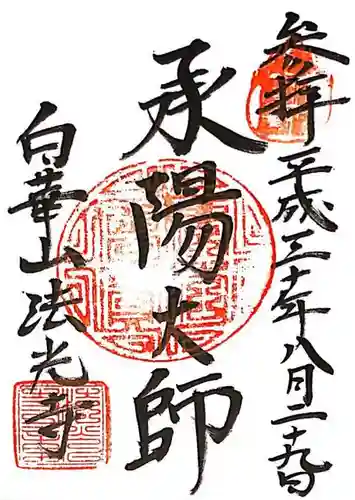 参拝
平成三十年八月二十九日
承陽大師
白華山法光寺